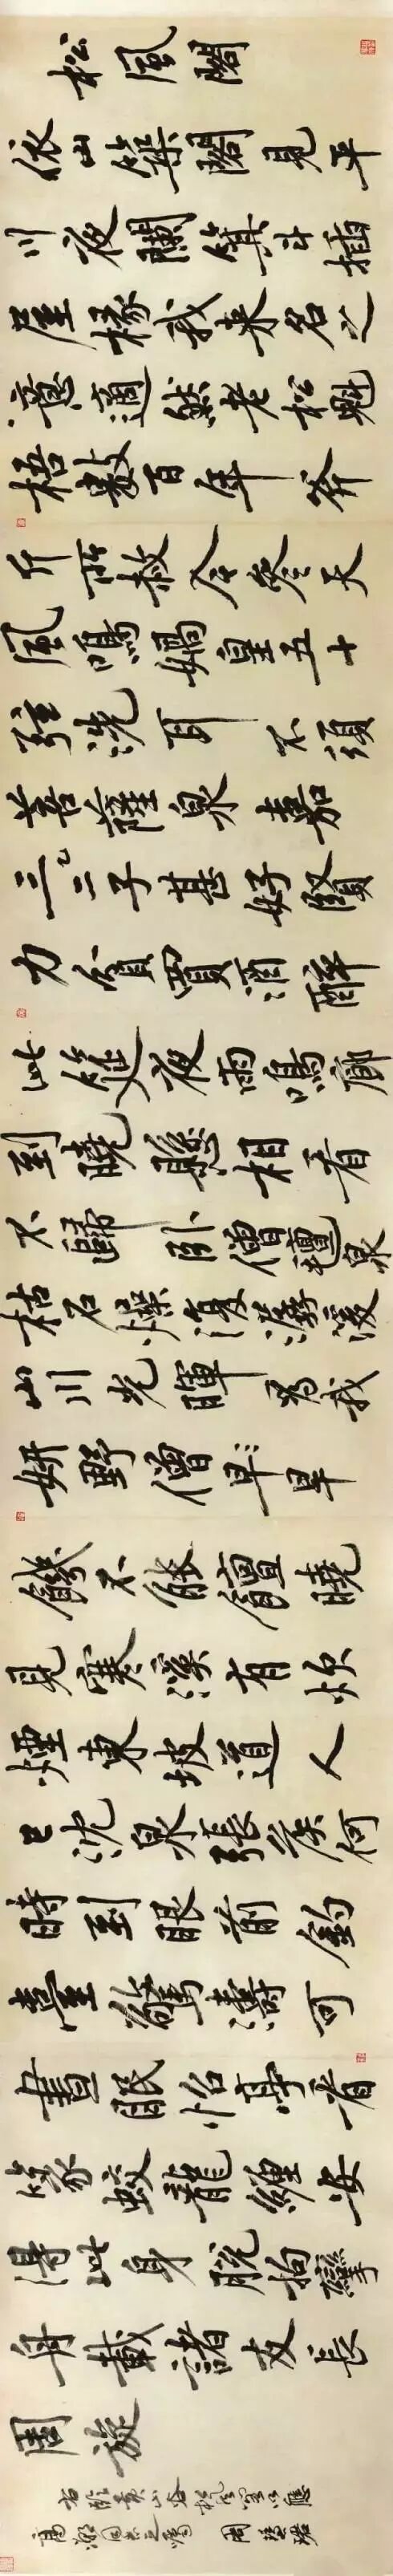 松風閣
依山築閣見平
川夜闌箕斗插
屋椽我來名之
意適然老松魁
梧數百年斧
斤所赦今參天
風鳴媧皇五十
弦洗耳不須
菩薩泉嘉
三二子甚好賢
力貧買酒醉
此筵夜雨鳴廊
到曉懸相看
不歸臥僧氈泉
枯石燥復潺湲
山川光暉為我
妍野僧早旱
饑不能饘曉
見寒溪有炊
煙東坡道人
已沈泉張侯何
時到眼前釣
臺驚濤可
晝眠怡亭看
篆蛟龍纏安
得此身脫拘攣
舟載諸友長
周旋
右臨黃山谷松風閣以應
高潮同志之囑 周慧珺